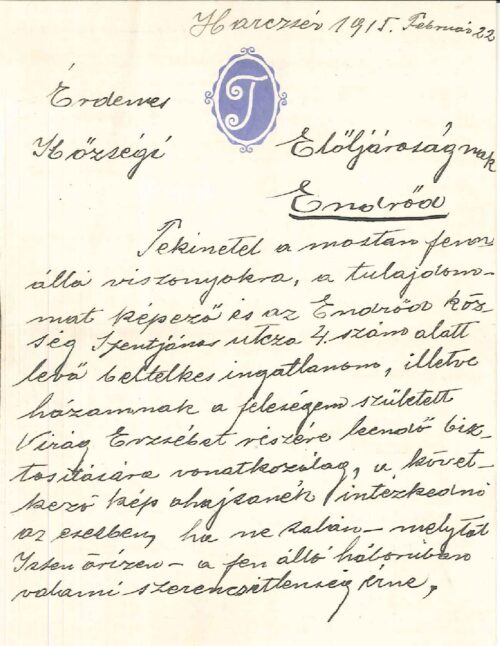 Harczsér 1915. Február 22
T
Érdemes
Községi Elöljáróságnak
Endrőd
Tekinetel a mostan fenn
álló viszonyokra, a tulajdom-
mat képező és az Endrőd köz-
ség Szentjános utcza 4 szám alatt
levő beltelkes ingatlanom, illetve
házamnak a feleségem született
Virág Erzsébet részére leendő biz-
tosítására vonatkozólag, a követ-
kező kép ohajtanék intézkedni
az esetben, ha ne talán - melytöl
Isten őrizen - a fen álló háborúban
valami szerencsétlenség érne,